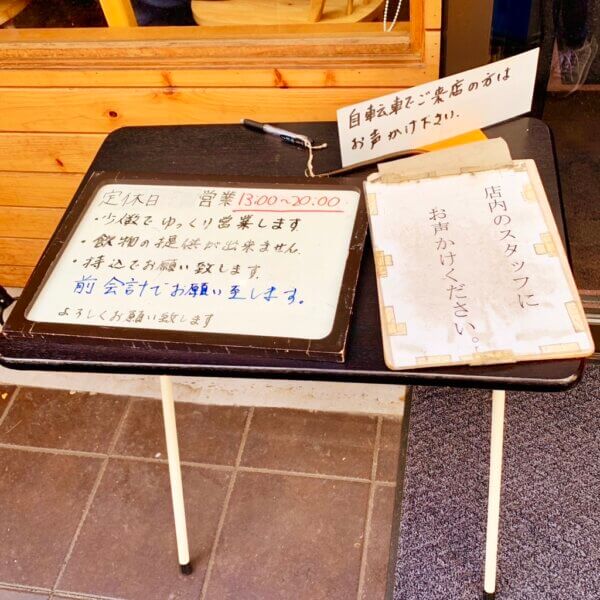 自転車でご来店の方は
お声かけ下さい.
定休日 営業 13:00〜20:00
・少数でゆっくり営業します
・飲物の提供が出来ません.
・持込でお願い致します.
前会計でお願い至します。
よろしくお願い致します
店内のスタッフに
お声かけください。